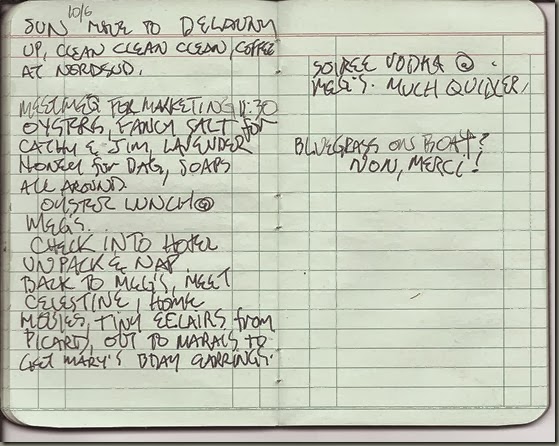 10/6
SUN MOVE TO DELAUNAY
UP, CLEAN CLEAN CLEAN, COFFEE
AT NORDSUD.
MEET MEG FOR MARKETING 11:30
OYSTERS, FANCY SALT for
CATHY & JIM, LAVENDER
HONEY for DAG, SOAPS
ALL AROUND.
OYSTER LUNCH @
MEG'S.
CHECK INTO HOTEL
UNPACK & NAP.
BACK TO MEG'S, MEET
CELESTINE, HOME
MOVIES, TINY ECLAIRS from
PICARD, OUT TO MARAIS TO
GET MARY'S BDAY EARRINGS.
SOIREE VODKA @
MEG'S. MUCH QUICKER.
BLUEGRASS ON BOAT?
NON, MERCI!